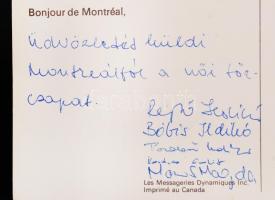 Bonjour de Montréal,
Üdvözletét küldi
Montreálból a női tőr-
csapat.
Rejtő Ildikó
Bóbis Ildikó
Magda
Les Messageries Dynamiques Inc.
Imprimé au Canada